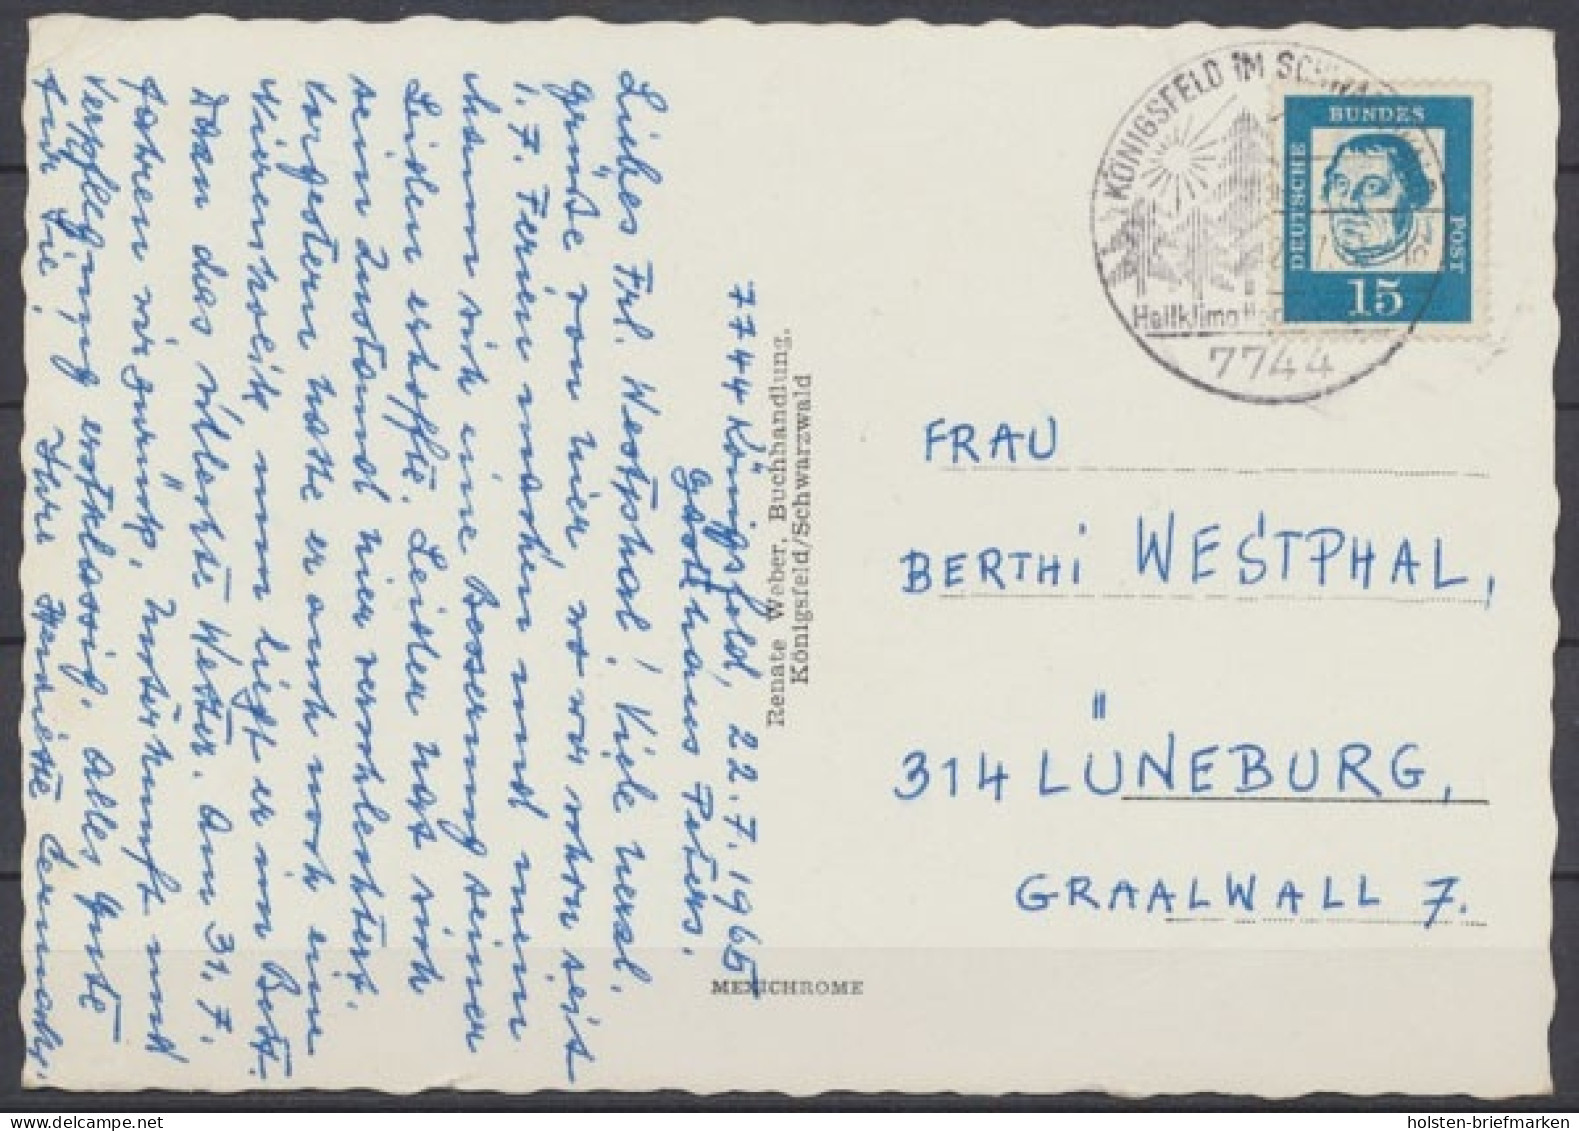 7744 Königsfeld, 22.7.1965
Gasthaus Peters.
Liebes Frl. Westphal! Viele herzl.
Grüße von hier, wo wir schon seit
1.7. Ferien machen und mein
sich eine Besserung seiner
Leiden erhoffte. Leider hat sich
sein Zustand hier verschlechtert.
Vorgestern hatte er auch noch eine
Nierenkolik, nun liegt er im Bett.
Dazu das schlechte Wetter. Am 31.7.
fahren wir zurück, Unterkunft und
Verpflegung erstklassig. Alles Gute
für Sie! Ihre Henriette
Renate Weber, Buchhandlung,
Königsfeld/Schwarzwald
MEXICHROME
KÖNIGSFELD IM SCHWARZWALD
Heilklima
7744
DEUTSCHE
BUNDES
POST
15
FRAU
BERTHI WESTPHAL,
314 LÜNEBURG,
GRAALWALL 7.
holsten-briefmarken